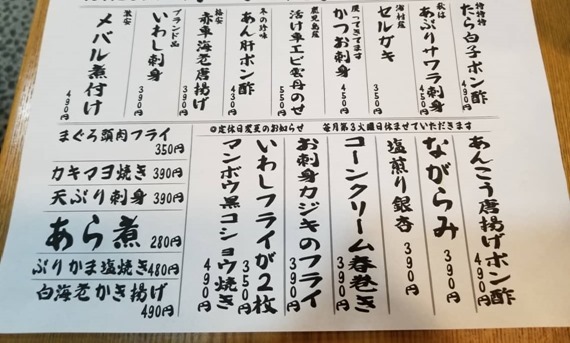 特特特
たら白子ポン酢
490円
秋は
あぶりサワラ刺身
450円
セルガキ
350円
戻ってきてます
かつお刺身
450円
鹿児島産
活け車エビ雲丹のせ
550円
冬の珍味
あん肝ポン酢
430円
格安
赤車海老唐揚げ
390円
ブランド品
いわし刺身
390円
激安
メバル煮付け
490円
◎定休日変更のお知らせ 毎月第3火曜日休ませていただきます
あんこう唐揚げポン酢
490円
ながらみ
390円
塩煎り銀杏
390円
コーンクリーム春巻き
390円
お刺身カジキのフライ
390円
いわしフライが2枚
350円
マンボウ黒コショウ焼き
490円
まぐろ頭肉フライ
350円
カキマヨ焼き390円
天ぶり刺身390円
あら煮280円
ぶりかま塩焼き480円
白海老かき揚げ
490円